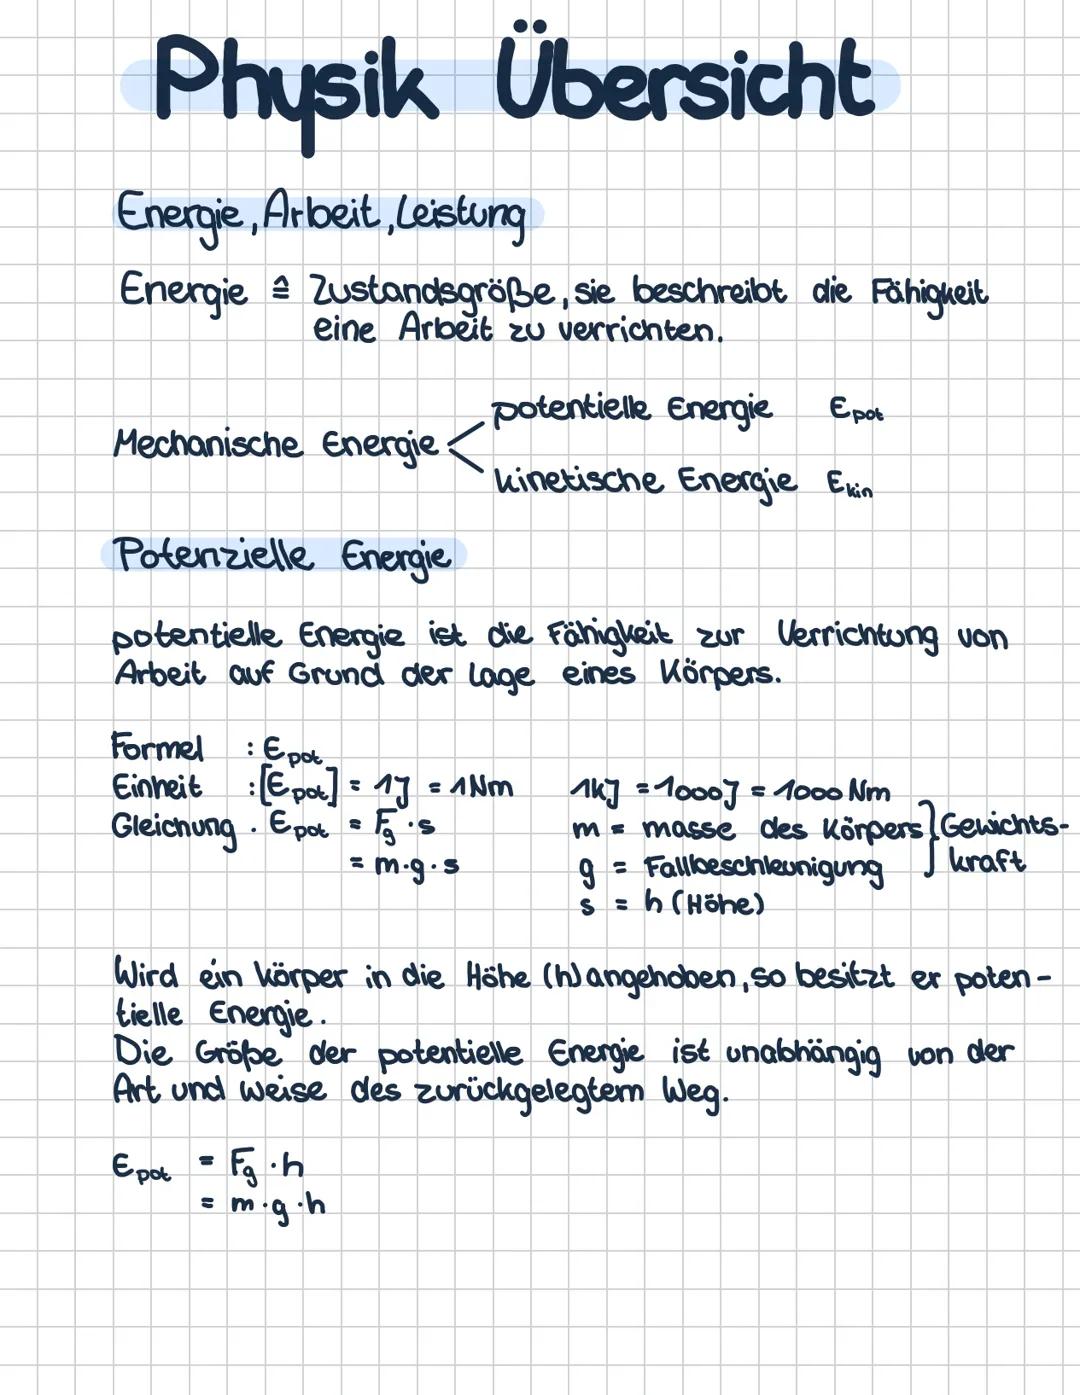 Physik Übersicht
Energie, Arbeit, Leistung
Energie ≙ Zustandsgröße, sie beschreibt die Fähigkeit
eine Arbeit zu verrichten.
potentielle Energie Epot
Mechanische Energie <
kinetische Energie Ekin
Potenzielle Energie
potentielle Energie ist die Fähigkeit zur Verrichtung von
Arbeit auf Grund der Lage eines Körpers.
Formel : Epot
Einheit : [Epot] = 1J = 1Nm 1kJ = 1000J = 1000 Nm
Gleichung . Epot = Fg · s m = masse des Körpers } Gewichts-
= m·g·s g = Fallbeschleunigung kraft
s = h (Höhe)
Wird ein Körper in die Höhe (h) angehoben, so besitzt er poten-
tielle Energie.
Die Größe der potentielle Energie ist unabhängig von der
Art und weise des zurückgelegtem Weg.
Epot = Fg · h
= m · g · h